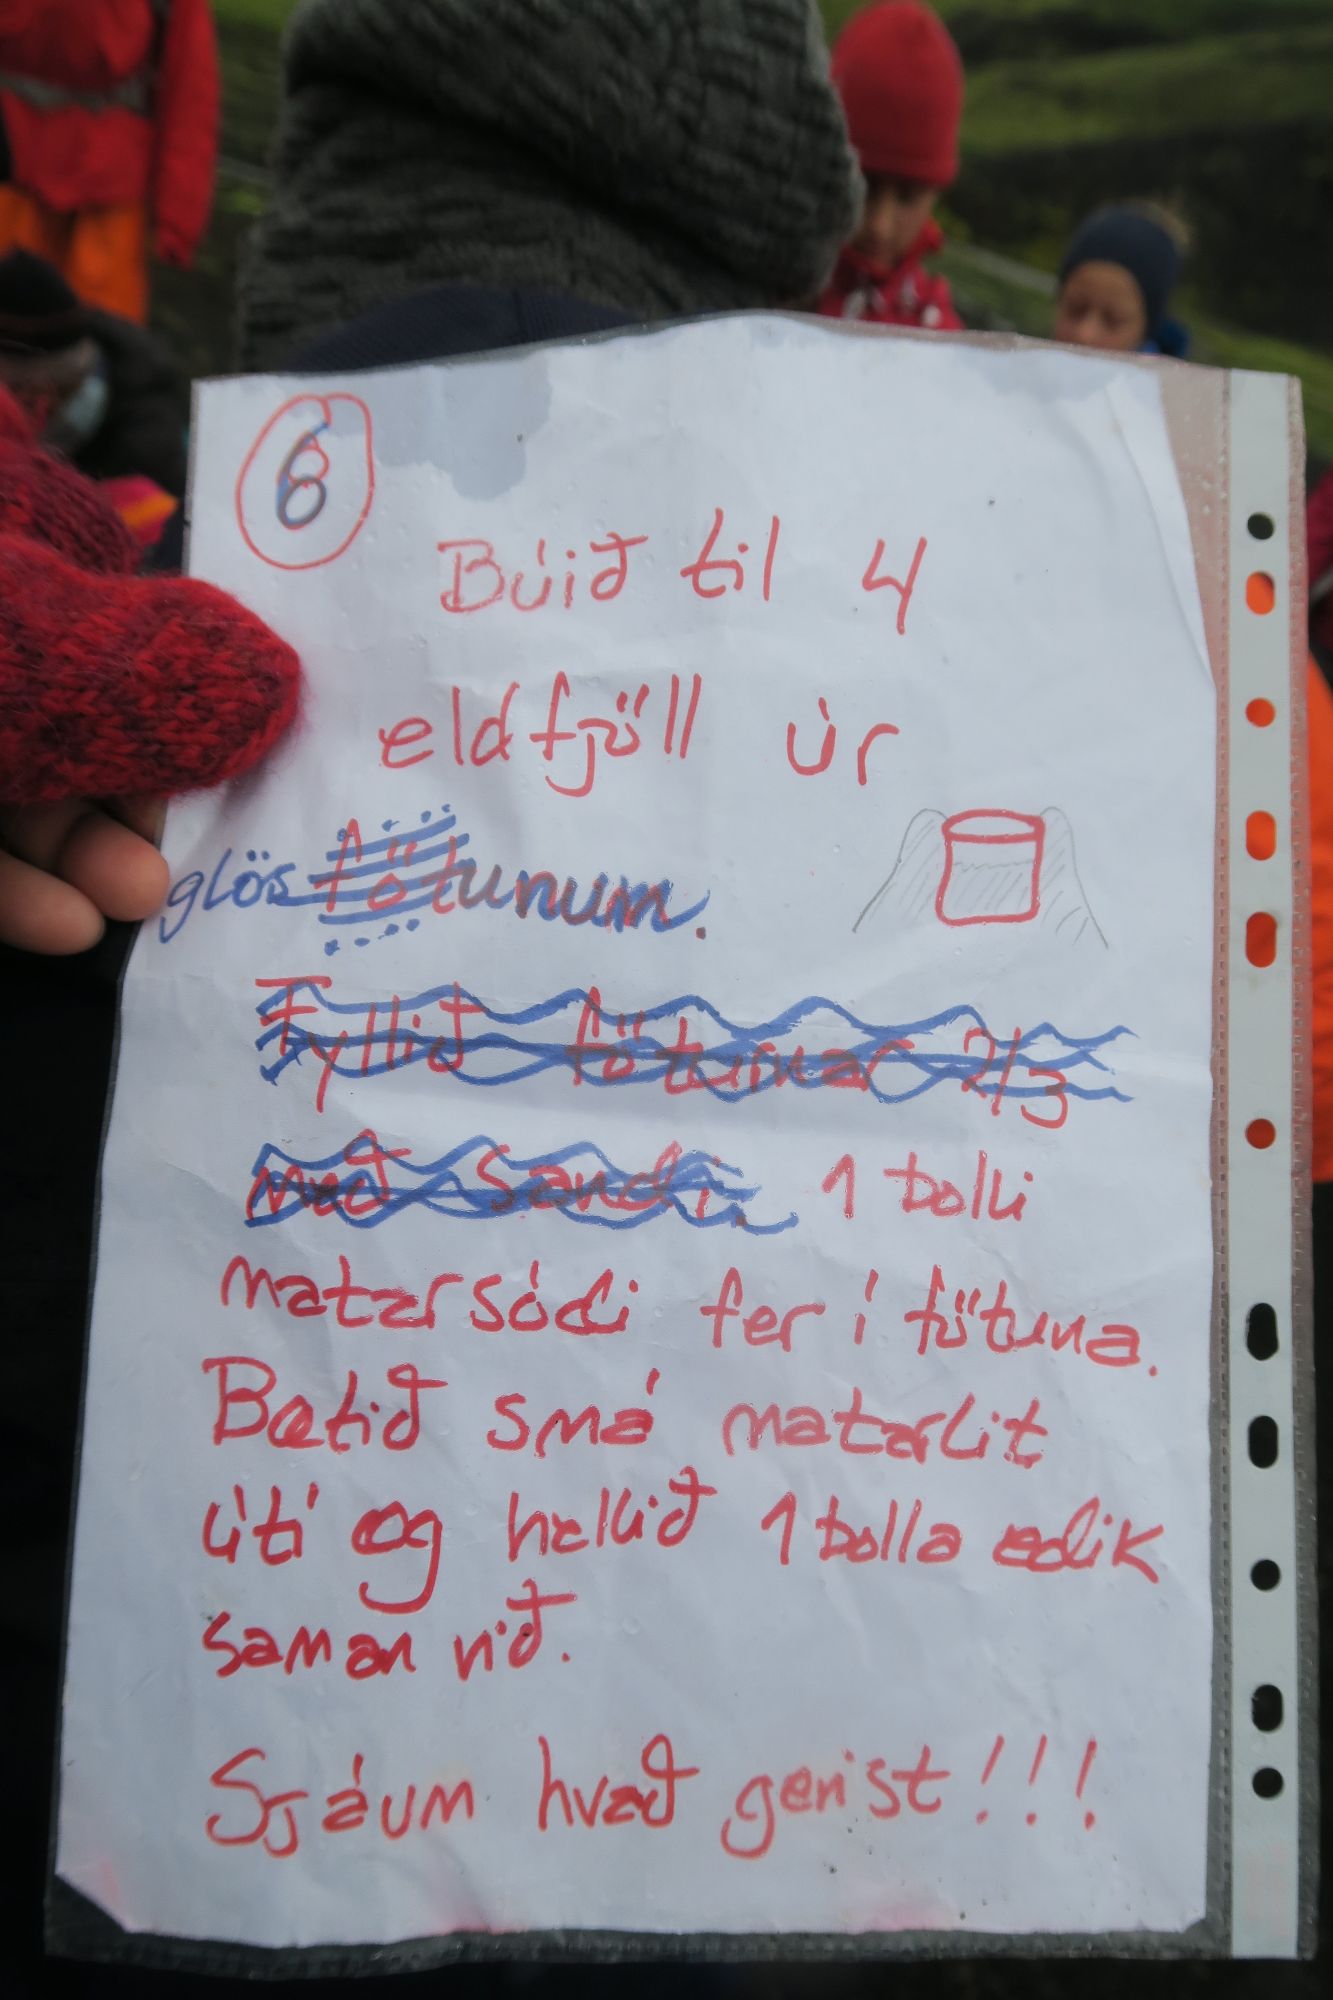 6
Búið til 4
eldfjöll úr
glös fötunum.
Fyllið föturnar 2/3
með sandi. 1 bolli
matarsódi fer í fötuna.
Bætið smá matarlit
útí og hellið 1 bolla edik
saman við.
Sjáum hvað gerist!!!